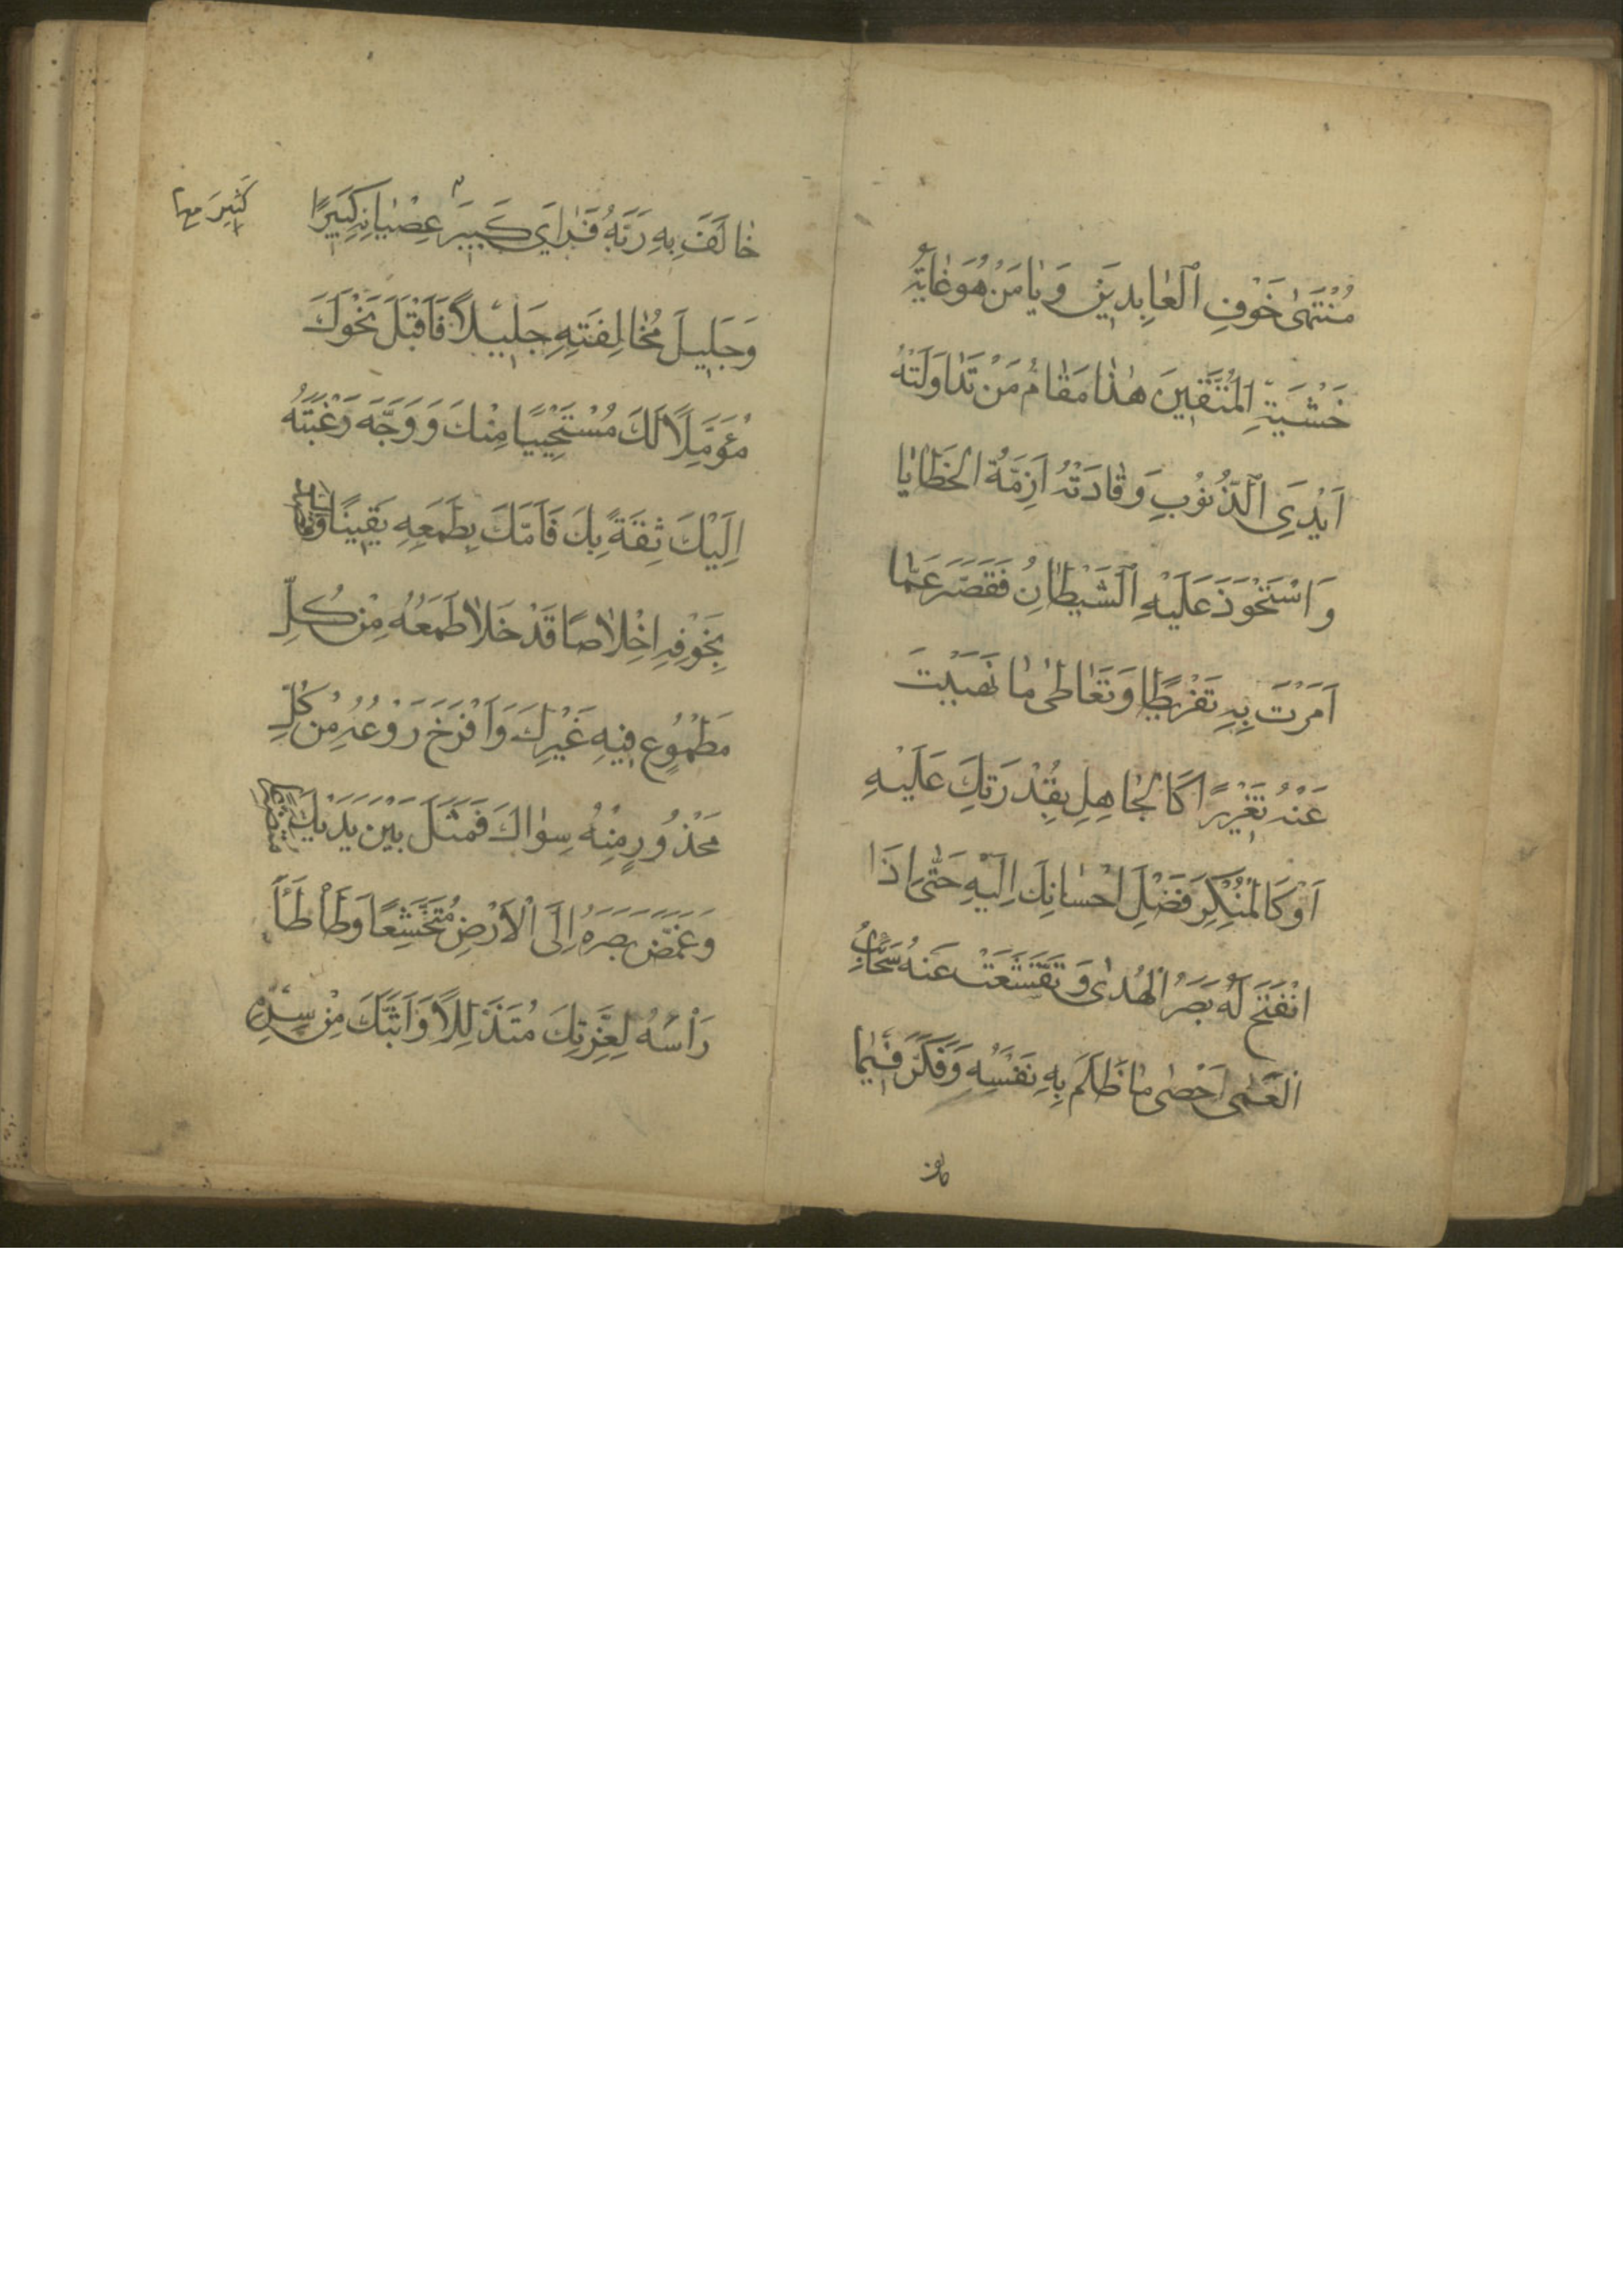 مُنْتَهىٰ خَوْفِ الْعٰابِدِيَنَ وَ يٰا مَنْ هُوَ غٰايَةُ
خَشْيَةِ الْمُتَّقِينَ هٰذٰا مَقٰامُ مَنْ تَدٰاوَلَتْهُ
اَيْدِى الذُّنُوُبِ وَ قٰادَتْهُ اَزِمَّةُ الْخَطٰايٰا
وَ اسْتَحْوَذَ عَلَيْهِ الشَّيْطٰانُ فَقَصَّرَ عَمّٰا
اَمَرْتَ بِهِ تَفْرِيطًا وَ تَعٰاطىٰ مٰا نَهَيْتَ
عَنْهُ تَغْرِيرًا كَالْجٰاهِلِ بِقُدْرَتِكَ عَلَيْهِ
اَوْ كَالْمُنْكِرِ فَضْلَ اِحْسٰانِكَ اِلَيْهِ حَتّٰى اِذَا
انْفَتَحَ لَهُ بَصَرُ الْهُدىٰ وَ تَقَشَّعَتْ عَنْهُ سَحٰائِبُ
الْعَمٰى اَحْصٰى مٰا ظَلَمَ بِهِ نَفْسَهُ وَ فَكَّرَ فِيمٰا
خٰالَفَ بِهِ رَبَّهُ فَرَاٰى كَبِيرَ عِصْيٰانِهِ كَبِيرًا
كَثِيرَ
وَ جَلِيلَ مُخٰالَفَتِهِ جَلِيلاً فَاَقْبَلَ نَحْوَكَ
مُؤَمِّلاً لَكَ مُسْتَحْيِيًا مِنْكَ وَ وَجَّهَ رَغْبَتَهُ
اِلَيْكَ ثِقَةً بِكَ فَاَمَّكَ بِطَمَعِهِ يَقِينًا وَ قَصَدَكَ
بِخَوْفِهِ اِخْلاٰصًا قَدْ خَلاٰ طَمَعُهُ مِنْ كُلِّ
مَطْمُوعٍ فِيهِ غَيْرِكَ وَ اَفْرَخَ رَوْعُهُ مِنْ كُلِّ
مَحْذُورٍ مِنْهُ سِوٰاكَ فَمَثَلَ بَيْنَ يَدَيْكَ
وَ غَمَّضَ بَصَرَهُ اِلَى الْاَرْضِ مُتَخَشِّعًا وَ طَأْطَأَ
رَأْسَهُ لِعِزَّتِكَ مُتَذَلِّلاً وَ اَبَثَّكَ مِنْ سِرِّهِ